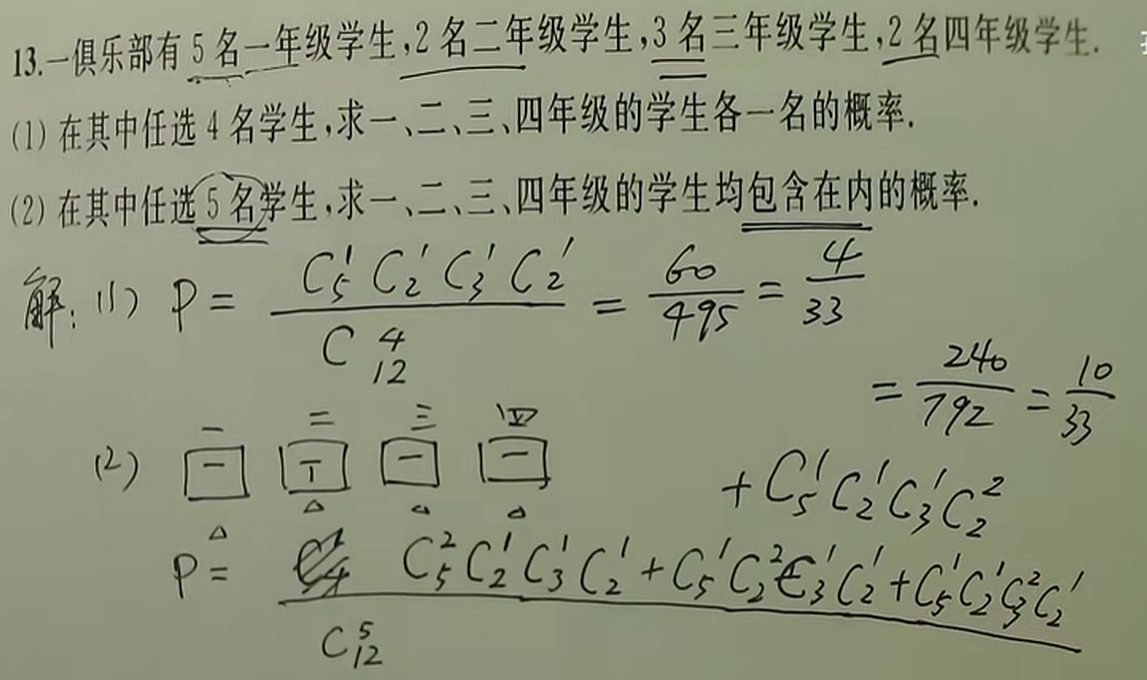 13.一俱乐部有5名一年级学生,2名二年级学生,3名三年级学生,2名四年级学生.
(1)在其中任选4名学生,求一、二、三、四年级的学生各一名的概率.
(2)在其中任选5名学生,求一、二、三、四年级的学生均包含在内的概率.
解:(1) P = C₅¹C₂¹C₃¹C₂¹ / C₁₂⁴ = 60/495 = 4/33
= 240/792 = 10/33
一 二 三 四
(2) 一 一 一
+ C₅¹C₂¹C₃¹C₂²
P = C₅²C₂¹C₃¹C₂¹ + C₅¹C₂²C₃¹C₂¹ + C₅¹C₂¹C₃²C₂¹
C₁₂⁵